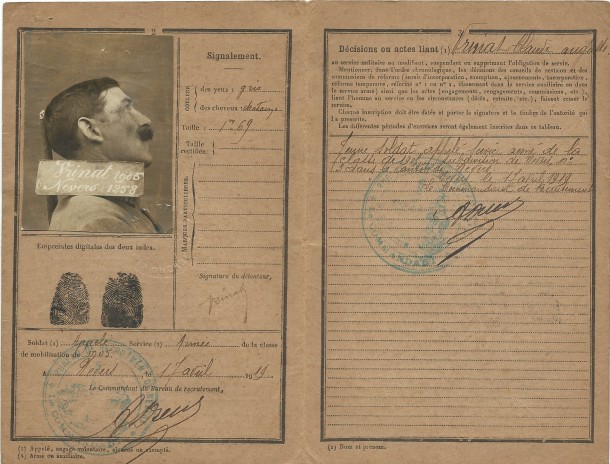 2
Signalement.
COULEUR
des yeux : gris
des cheveux :
Taille : 1m 69
Taille
rectifiée :
MARQUES PARTICULIÈRES.
Vrinat 1905
Nevers - 1258
Empreintes digitales des deux index.
Signature du détenteur,
Vrinat
Soldat (1) appelé Service (2) Armée de la classe
de mobilisation de 1905.
A Nevers le 17 avril 1919
Le Commandant du Bureau de recrutement,
(1) Appelé, engagé volontaire, ajourné ou exempté.
(2) Armé ou auxiliaire.
3
Décisions ou actes liant (1) Vrinat Claude
au service militaire ou modifiant, suspendant ou supprimant l'obligation de service.
Mentionner, dans l'ordre chronologique, les décisions des conseils de revision et des
commissions de réforme (sursis d'incorporation, exemption, ajournements, incorporation,
réforme temporaire, réforme n° 1 ou n° 2, classement dans le service auxiliaire ou dans
le service armé) ainsi que les actes (engagements, rengagements, commissions, etc.),
liant l'homme au service ou les circonstances (décès, retraite, etc.), faisant cesser le
service.
Chaque inscription doit être datée et porter la signature et le timbre de l'autorité qui
la prescrite.
Les différentes périodes d'exercices seront également inscrites dans ce tableau.
Jeune soldat appelé de la
classe de 1905, subdivision de Nevers n°
dans le canton de Nevers
le 17 avril 1919
Le Commandant de recrutement
(1) Nom et prénoms.